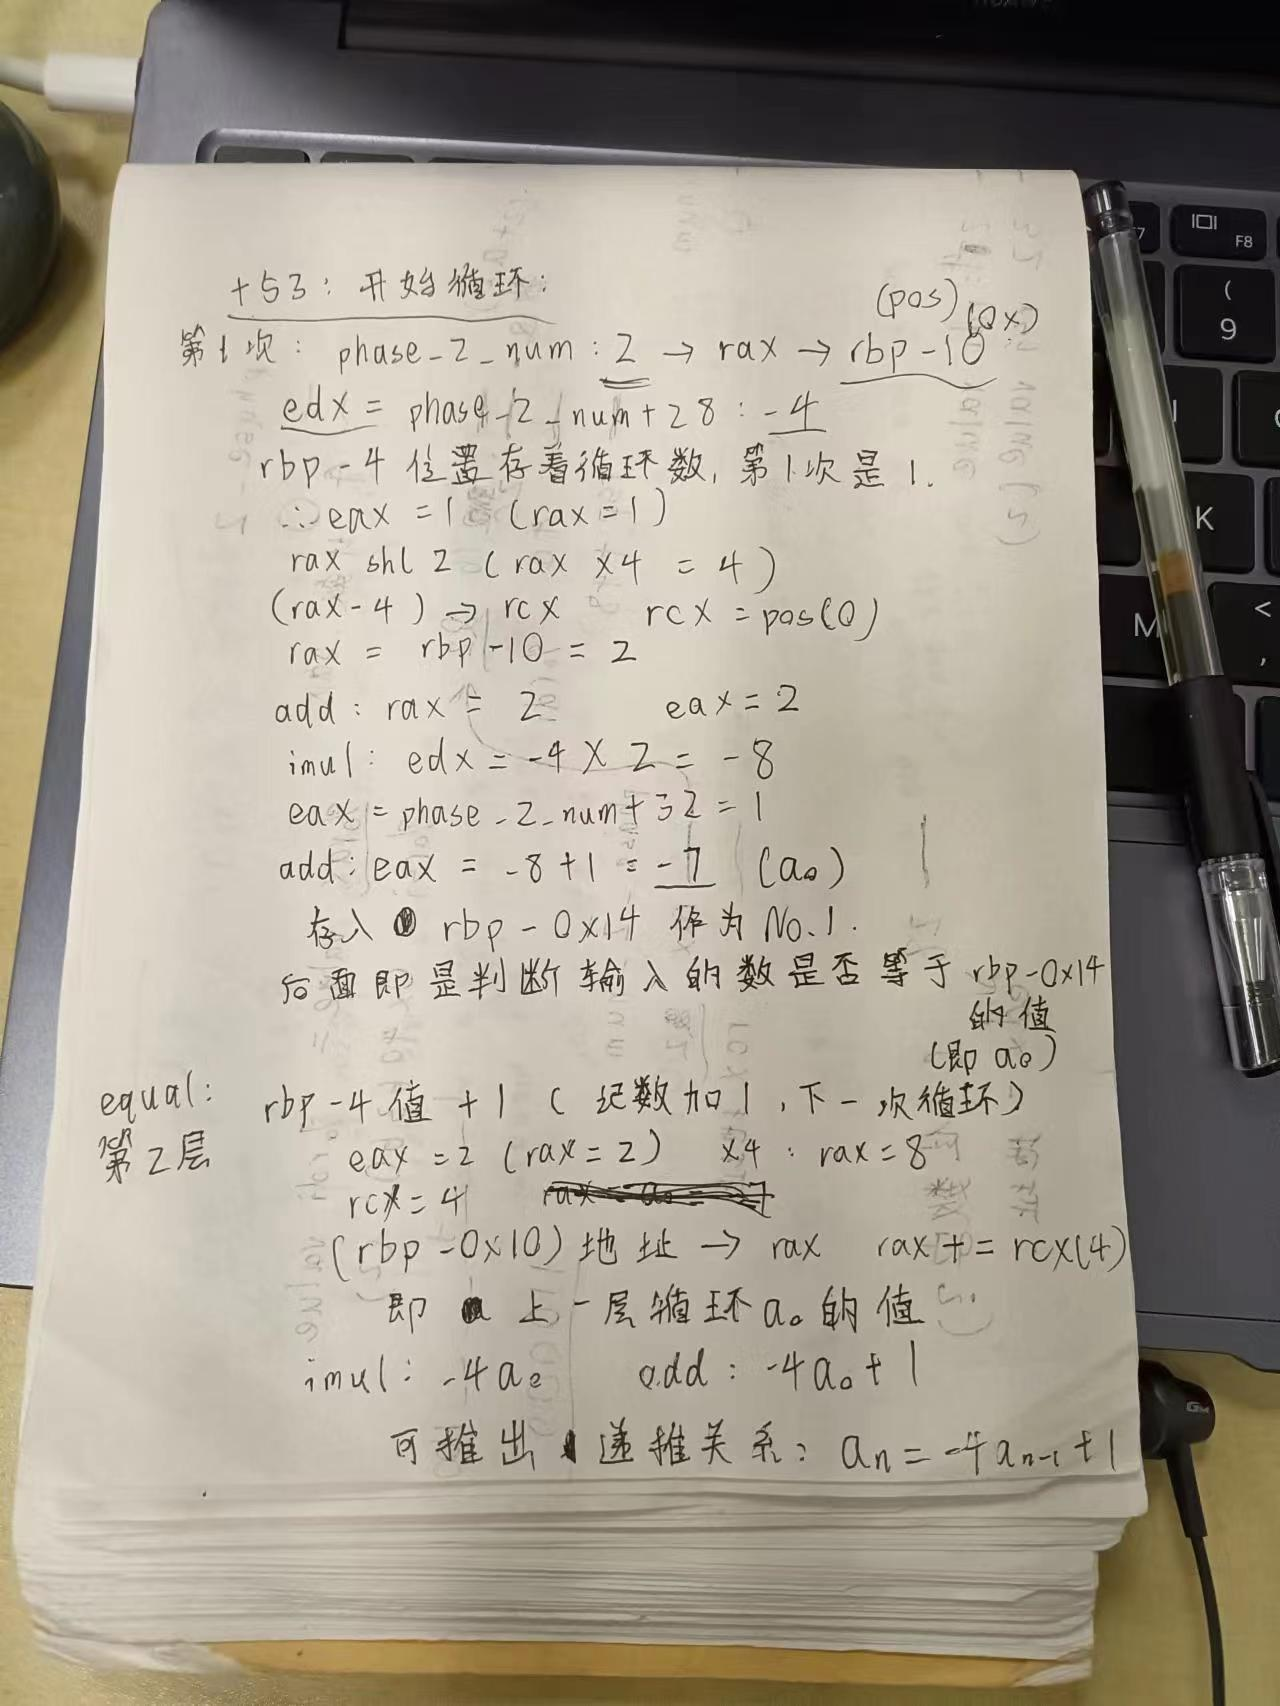 +53: 开始循环:
(pos) (0x)
第1次: phase_2_num: 2 → rax → rbp-10
edx = phase_2_num+28: -4
rbp-4位置存着循环数, 第1次是1.
∴eax = 1 (rax=1)
rax shl 2 (rax ×4 = 4)
(rax-4) → rcx rcx = pos(0)
rax = rbp-10 = 2
add: rax = 2 eax = 2
imul: edx = -4 × 2 = -8
eax = phase_2_num+32 = 1
add: eax = -8+1 = -7 (a₀)
存入 rbp-0x14 作为 No.1.
后面即是判断输入的数是否等于 rbp-0x14
的值
(即 a₀)
equal: rbp-4值 +1 (记数加1,下一次循环)
第2层 eax = 2 (rax=2) ×4: rax=8
rcx = 4
(rbp-0x10)地址 → rax rax += rcx(4)
即 上一层循环a₀的值
imul: -4a₀ add: -4a₀+1
可推出 递推关系: aₙ = -4aₙ₋₁+1
F8
(
9
K
M
<
,